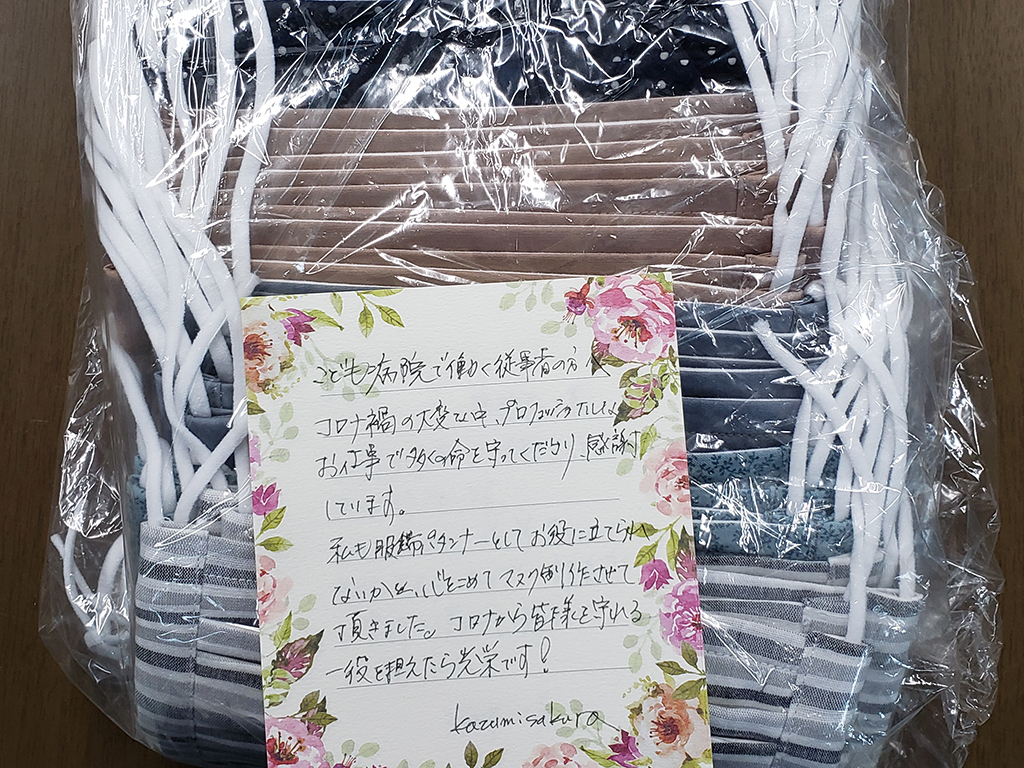 こども病院で働く従事者の方へ
コロナ禍の大変な中、プロフェッショナルな
お仕事で多くの命を守ってくださり、感謝
しています。
私も服飾デザイナーとしてお役に立てられ
ないかと、心をこめてマスク制作させて
頂きました。コロナから皆様を守れる
一役を担えたら光栄です！
kazumi sakura